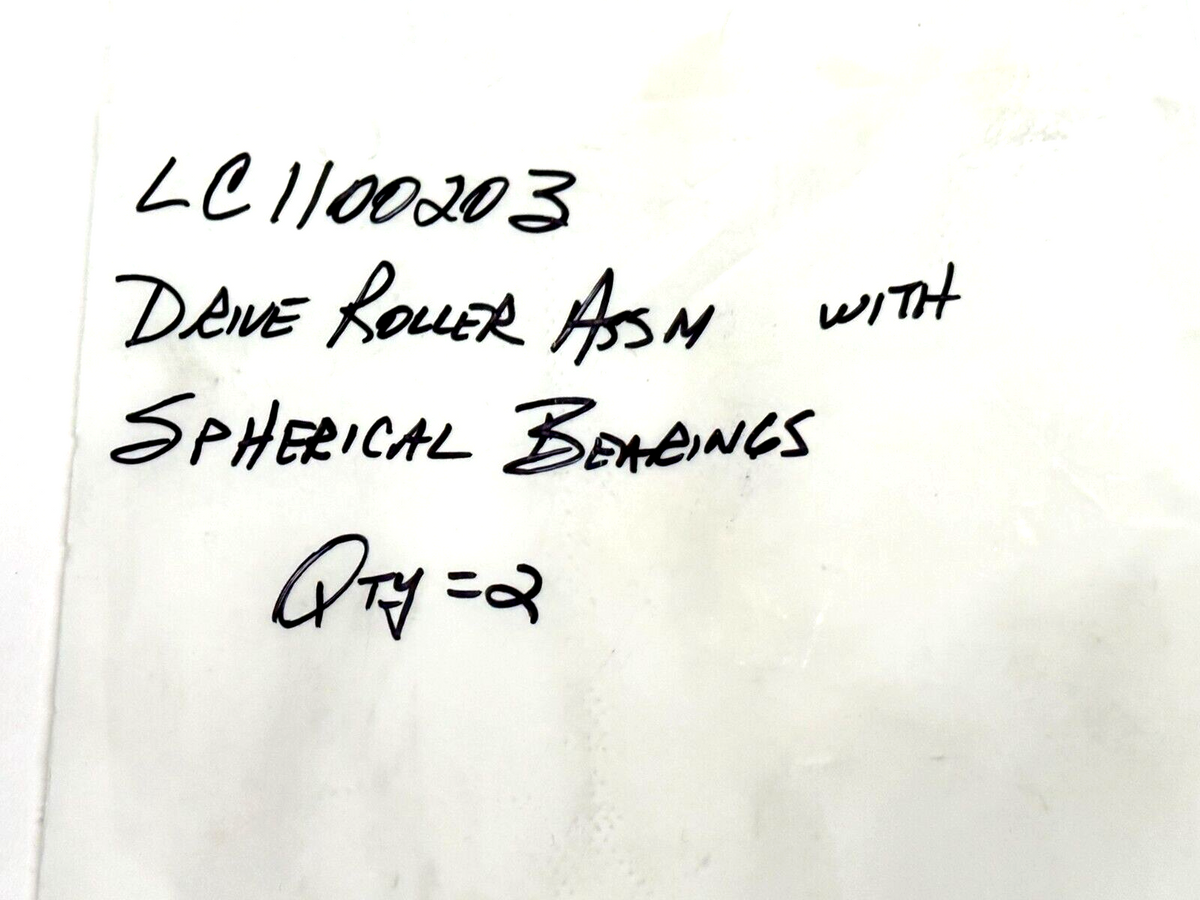 LC1100203
DRIVE ROLLER ASSM WITH
SPHERICAL BEARINGS
QTY = 2